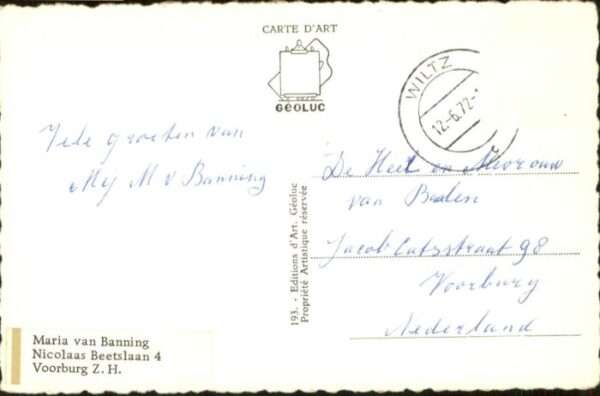 CARTE D'ART
GÉOLUC
WILTZ
12-6.72-
Vele groeten van
Mej M v Banning
De Heer en Mevrouw
van Baalen
Jacob Catsstraat 98
Voorburg
Nederland
193. - Editions d'Art. Géoluc
Propriété Artistique réservée
Maria van Banning
Nicolaas Beetslaan 4
Voorburg Z. H.